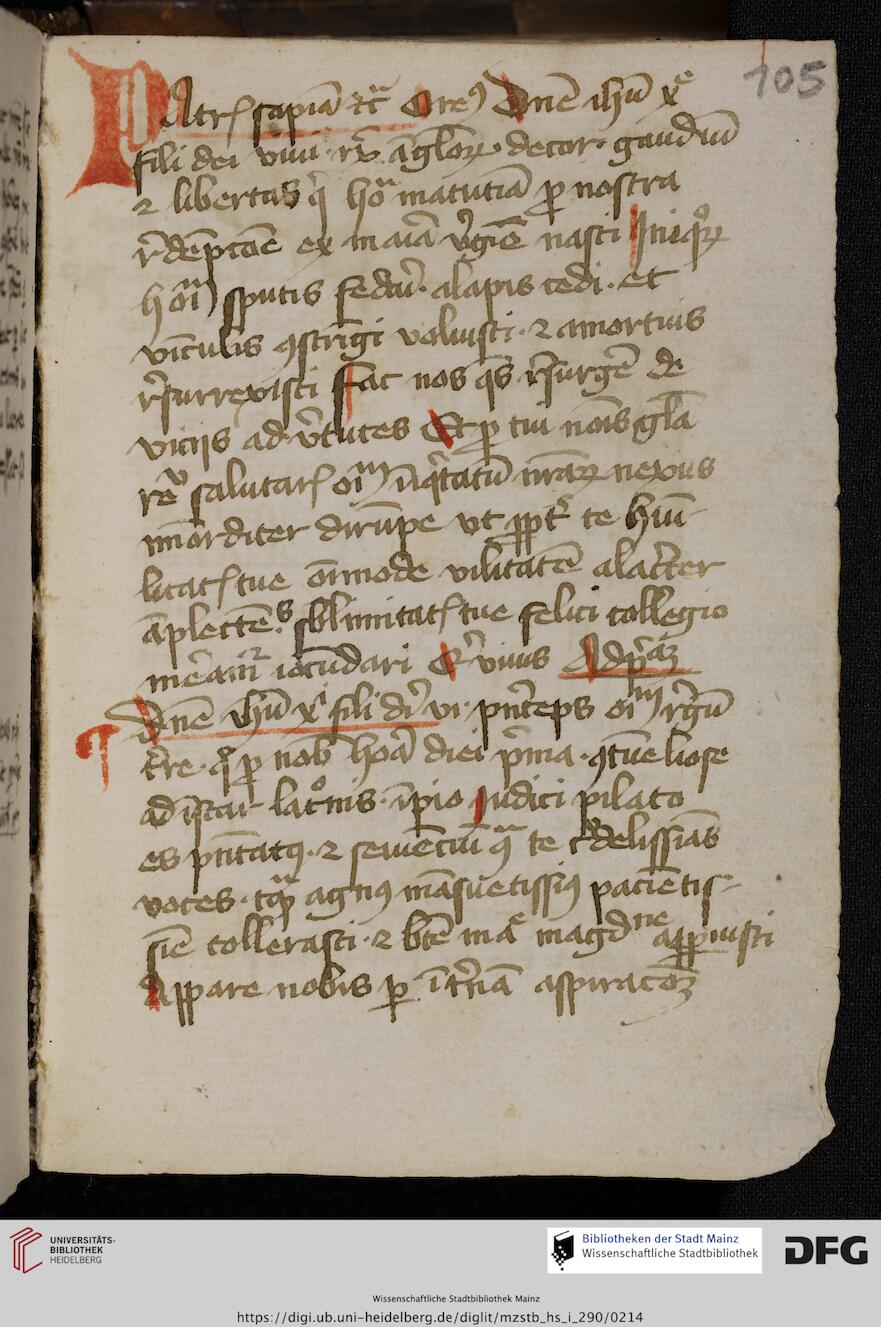 105
PAtrꝭ sapiā ⁊cͣ Oremꝰ Dn̄e ihū xͤ
fili dei viui rͯ āgl̄oꝝ decor · gaudiū
⁊ libertas q̇ hōͣ matutīa ꝓ nostra
r̄dēpcōe ex maīa v̓gīe nasci Iniqͦꝝ
hōīm sputis fedari · alapis cedi · et
vīculis ꝯstrīgi voluisti · ⁊ amortuis
r̓surrexisti Fac nos q̄s r̓surgē̓ de
vicijs ad v̓tutes Et ꝓ tui noīs gl̄a
salutarꝭ oīm īiq̇tatū nr̄aꝝ nexus
dirūpe vt ꝓpt̓ te humi-
litatꝭ tue oīmode vilitatē alac̓ter
āplectētes sblimitatꝭ tue felici collegio
m̓eamͬ iocūdari Q̇ viuis Ad p̓mā
Dn̄e ihū xͤ fili di̓ vi · pn̓ceps oīm r̓gū
t̓re · qͥ ꝓ nob̄ hōͣ diei p̓ma · ꝯtūeliose
ad īstar latͦnis · īpio Iudici pilato
es pn̄tatꝰ · ⁊ seuiēciū qͣ te c̓delissīas
voces · tāqͣ agnꝰ māsuetissimꝰ paciētis-
sīe tollerasti · ⁊ btē maͤ magdͩne apparuisti
Appare nobis ꝑ īt̓nā aspiracōeꝫ
UNIVERSITÄTS-
BIBLIOTHEK
HEIDELBERG
Bibliotheken der Stadt Mainz
Wissenschaftliche Stadtbibliothek
DFG
Wissenschaftliche Stadtbibliothek Mainz
https://digi.ub.uni-heidelberg.de/diglit/mzstb_hs_i_290/0214